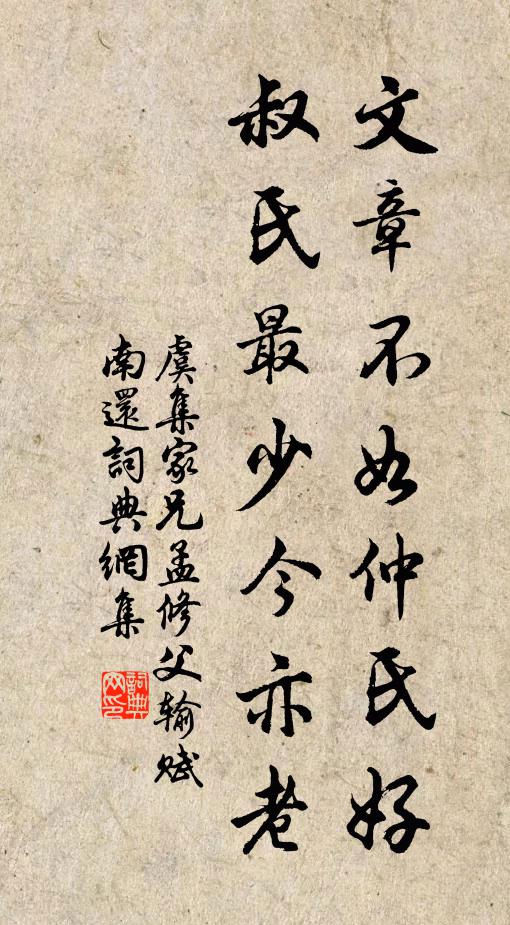 文章不如仲氏好
叔氏最少今亦老
虞集家兄孟修父输赋
南還詞典網集
詞典网印